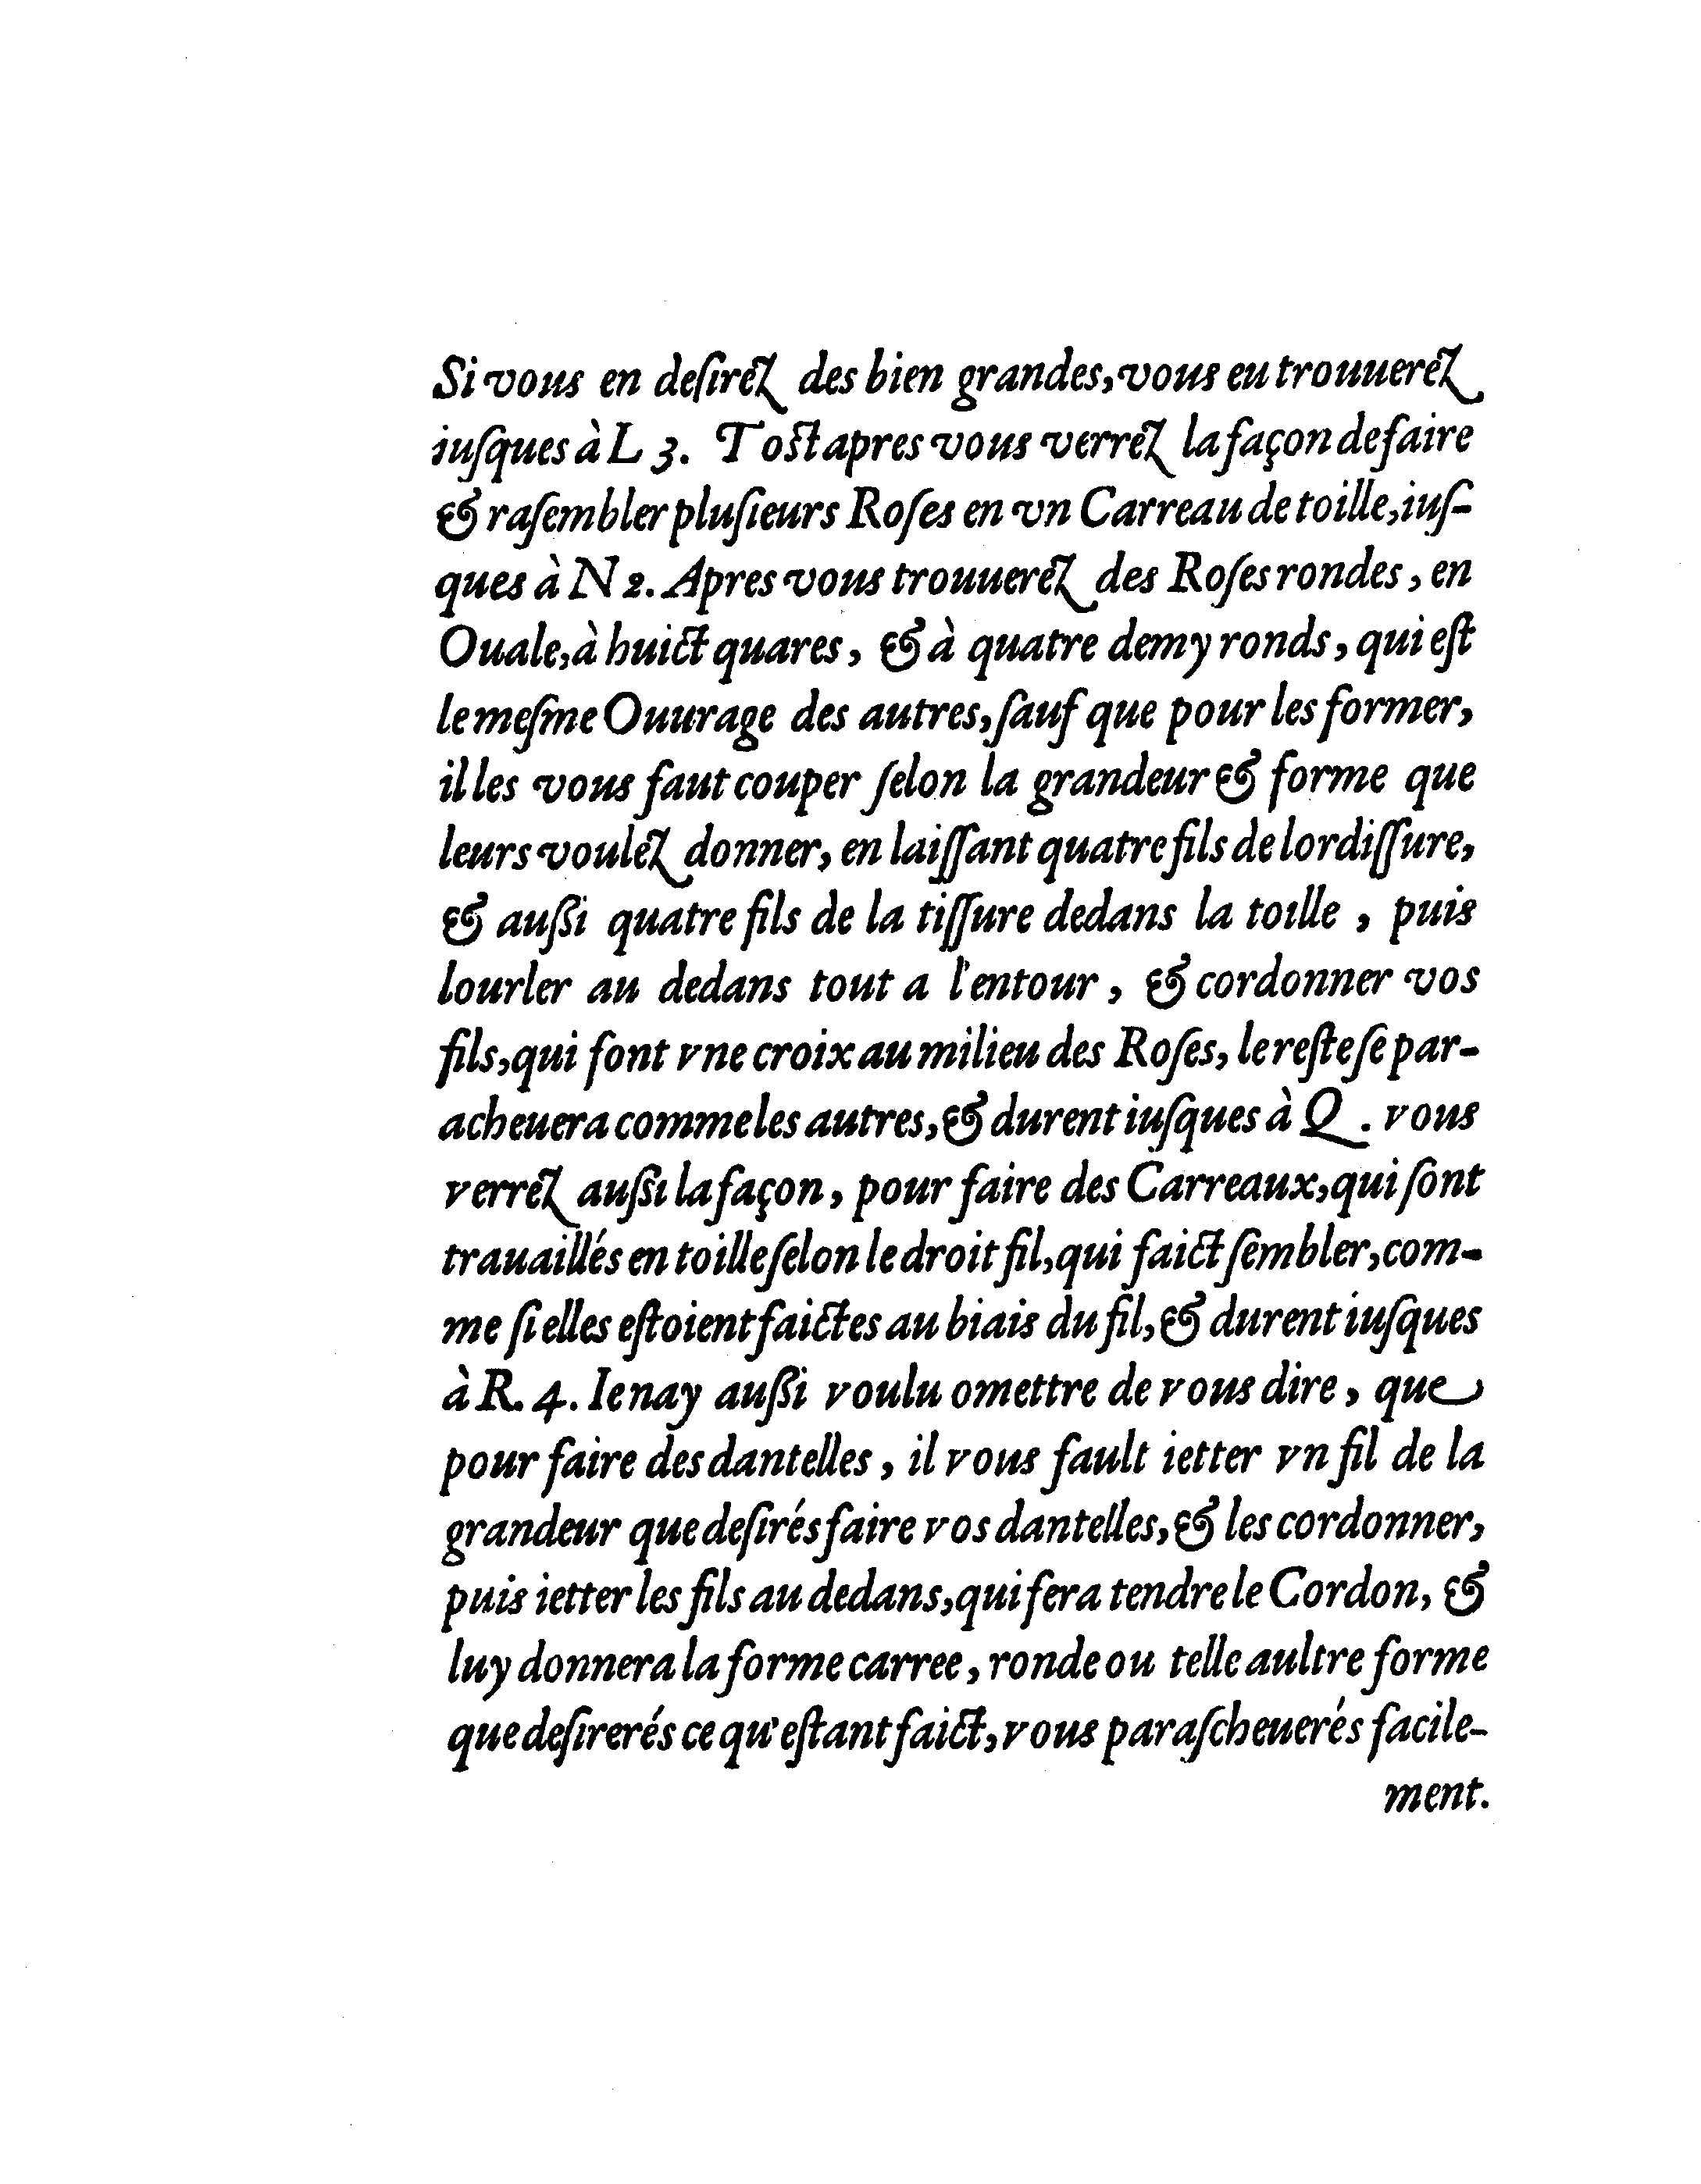 Si vous en deſiréz des bien grandes, vous eu trouueréz
iuſques à L 3. Toſt apres vous verréz la façon de faire
& raſembler pluſieurs Roſes en vn Carreau de toille, iuſ-
ques à N 2. Apres vous trouueréz des Roſes rondes, en
Ouale, à huict quares, & à quatre demy ronds, qui eſt
le meſme Ouurage des autres, ſauf que pour les former,
il les vous faut couper ſelon la grandeur & forme que
leurs vouléz donner, en laiſſant quatre fils de lordiſſure,
& außi quatre fils de la tiſſure dedans la toille, puis
lourler au dedans tout a l'entour, & cordonner vos
fils, qui font vne croix au milieu des Roſes, le reſte ſe par-
acheuera comme les autres, & durent iuſques à Q. vous
verréz auſsi la façon, pour faire des Carreaux, qui ſont
trauaillés en toille ſelon le droit fil, qui faict ſembler, com-
me ſi elles eſtoient faictes au biais du fil, & durent iuſques
à R. 4. Ie nay außi voulu omettre de vous dire, que
pour faire des dantelles, il vous fault ietter vn fil de la
grandeur que deſirés faire vos dantelles, & les cordonner,
puis ietter les fils au dedans, qui fera tendre le Cordon, &
luy donnera la forme carree, ronde ou telle aultre forme
que deſirerés ce qu'eſtant faict, vous paraſcheuerés facile-
ment.